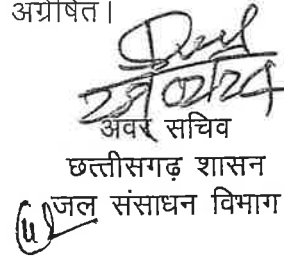 अग्रेषित।
29/02/24
अवर सचिव
छत्तीसगढ़ शासन
जल संसाधन विभाग